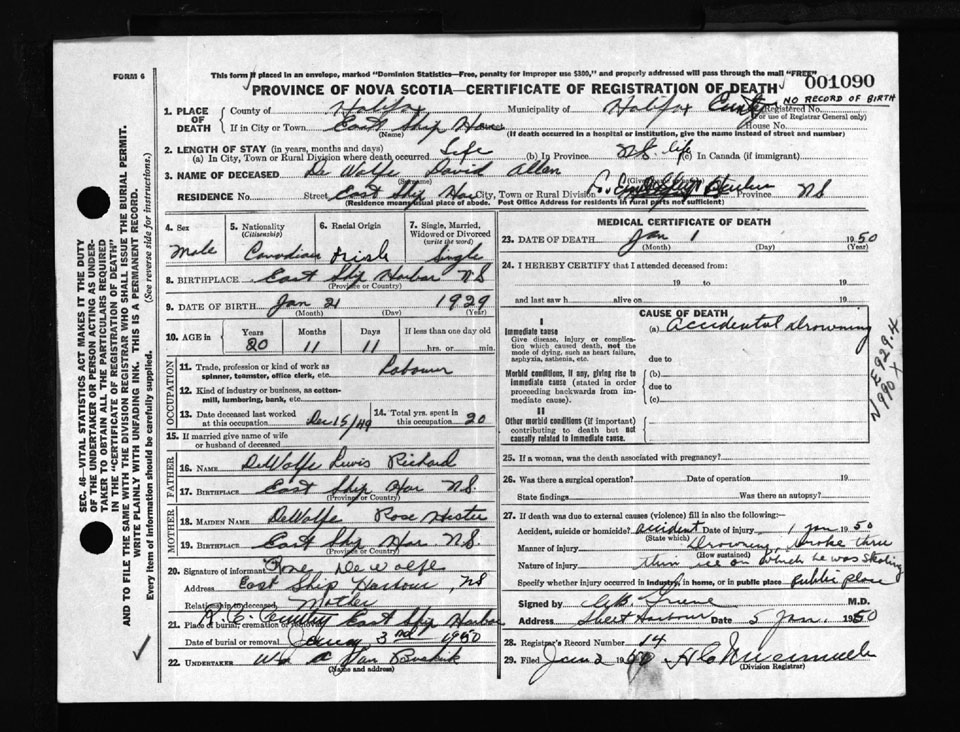 FORM 6
This form if placed in an envelope, marked "Dominion Statistics—Free, penalty for improper use $300," and properly addressed will pass through the mail "FREE"
001090
PROVINCE OF NOVA SCOTIA—CERTIFICATE OF REGISTRATION OF DEATH
NO RECORD OF BIRTH
1. PLACE OF DEATH County of Halifax Municipality of Halifax County Registered No.
(For use of Registrar General only)
If in City or Town East Ship Har House No.
(Name) (If death occurred in a hospital or institution, give the name instead of street and number)
2. LENGTH OF STAY (in years, months and days)
(a) In City, Town or Rural Division where death occurred Life (b) In Province NS life (c) In Canada (if immigrant)
3. NAME OF DECEASED De Wolfe David Allen
(Surname) (Given
RESIDENCE No. Street East Ship Har City, Town or Rural Division Province NS
(Residence means usual place of abode. Post Office Address for residents in rural parts not sufficient)
4. Sex Male
5. Nationality (Citizenship) Canadian
6. Racial Origin Irish
7. Single, Married, Widowed or Divorced (write the word) Single
8. BIRTHPLACE East Ship Harbor NS
(Province or Country)
9. DATE OF BIRTH Jan 21 1929
(Month) (Day) (Year)
10. AGE in Years 20 Months 11 Days 11 If less than one day old hrs. or min.
OCCUPATION
11. Trade, profession or kind of work as spinner, teamster, office clerk, etc. Labourer
12. Kind of industry or business, as cotton-mill, lumbering, bank, etc.
13. Date deceased last worked at this occupation Dec 15/49
14. Total yrs. spent in this occupation 20
15. If married give name of wife or husband of deceased
FATHER
16. NAME DeWolfe Lewis Richard
17. BIRTHPLACE East Ship Har N.S.
(Province or Country)
MOTHER
18. MAIDEN NAME DeWolfe Rose Hester
19. BIRTHPLACE East Ship Har N.S.
(Province or Country)
20. Signature of informant Rose DeWolfe
Address East Ship Harbour, NS
Relationship to deceased Mother
21. Place of burial, cremation or removal R.C. East Ship Harbor
Date of burial or removal January 3rd 1950
22. UNDERTAKER Wm A Van Buskirk
(Name and address)
MEDICAL CERTIFICATE OF DEATH
23. DATE OF DEATH Jan 1 1950
(Month) (Day) (Year)
24. I HEREBY CERTIFY that I attended deceased from:
19 to 19
and last saw h alive on 19
CAUSE OF DEATH
I
Immediate cause
Give disease, injury or complication which caused death, not the mode of dying, such as heart failure, asphyxia, asthenia, etc.
(a) Accidental Drowning
due to
Morbid conditions, if any, giving rise to immediate cause (stated in order proceeding backwards from immediate cause).
(b)
due to
(c)
II
Other morbid conditions (if important) contributing to death but not causally related to immediate cause.
E929.4
N990 X
25. If a woman, was the death associated with pregnancy?
26. Was there a surgical operation? Date of operation 19
State findings Was there an autopsy?
27. If death was due to external causes (violence) fill in also the following:
Accident, suicide or homicide? accident Date of injury 1 Jan 1950
(State which)
Manner of injury Drowning, broke thru
(How sustained)
Nature of injury thin ice on which he was skating
Specify whether injury occurred in industry, in home, or in public place Public place
Signed by Greene M.D.
Address Sheet Harbour Date 5 Jan. 1950
28. Registrar's Record Number 14
29. Filed Jan 2 1950
(Division Registrar)
SEC. 46—VITAL STATISTICS ACT MAKES IT THE DUTY
OF THE UNDERTAKER OR PERSON ACTING AS UNDER-
TAKER TO OBTAIN ALL THE PARTICULARS REQUIRED
IN THE "CERTIFICATE OF REGISTRATION OF DEATH"
AND TO FILE THE SAME WITH THE DIVISION REGISTRAR WHO SHALL ISSUE THE BURIAL PERMIT.
WRITE PLAINLY WITH UNFADING INK. THIS IS A PERMANENT RECORD.
Every item of information should be carefully supplied. (See reverse side for instructions.)